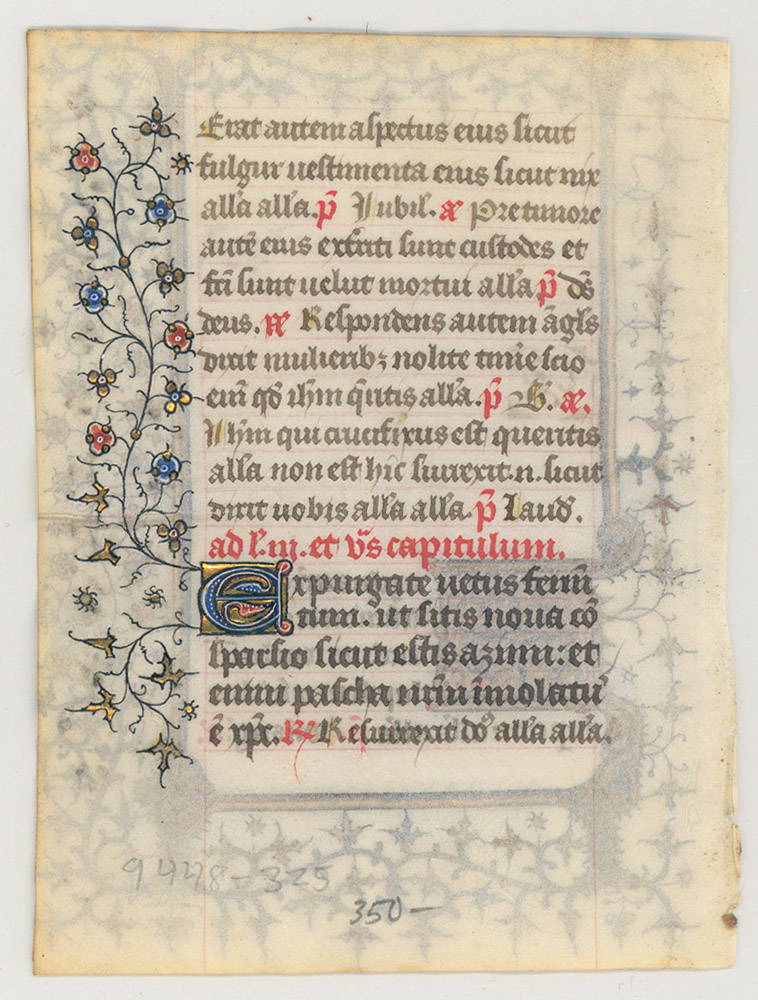 Erat autem aspectus eius sicut
fulgur uestimenta eius sicut nix
all'a all'a. p̄ Iubil'. æ Pre timore
autē eius ext'riti sunt custodes et
fc̄i sunt uelut mortui all'a p̄ ds̄
deus. æ Respondens autem āgl's
dixit mulierib; nolite tim'e scio
eni̅ qd̄ ih̄m q̄ritis all'a. p̄ æ.
Ih̄m qui crucifixus est queritis
all'a non est hic surrexit. n. sicut
dixit uobis all'a all'a. p̄ Laud'.
ad l'. m. et vs̄ capitulum.
Expurgate uetus ferm̄
tum. ut sitis noua cō
sparsio sicut estis azimi: et
enim pascha nr̄m īmolatu'
ē xp̄c. R̷ Resurrexit do' all'a all'a.
9478-325
350-